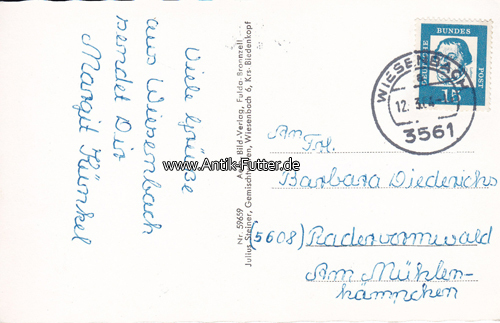 Viele Grüße
aus Wiesenbach
sendet Dir
Margit Künkel
Bild-Verlag, Fulda-Bronnzell
Nr. 59659
Julius Steiner, Gemischtwaren, Wiesenbach 6, Krs. Biedenkopf
DEUTSCHE BUNDES POST
15
WIESENBACH
12. 3.64
3561
An
Frl.
Barbara Diederichs
(5608) Radevormwald
Am Mühlen-
kämpchen
www.Antik-Futter.de